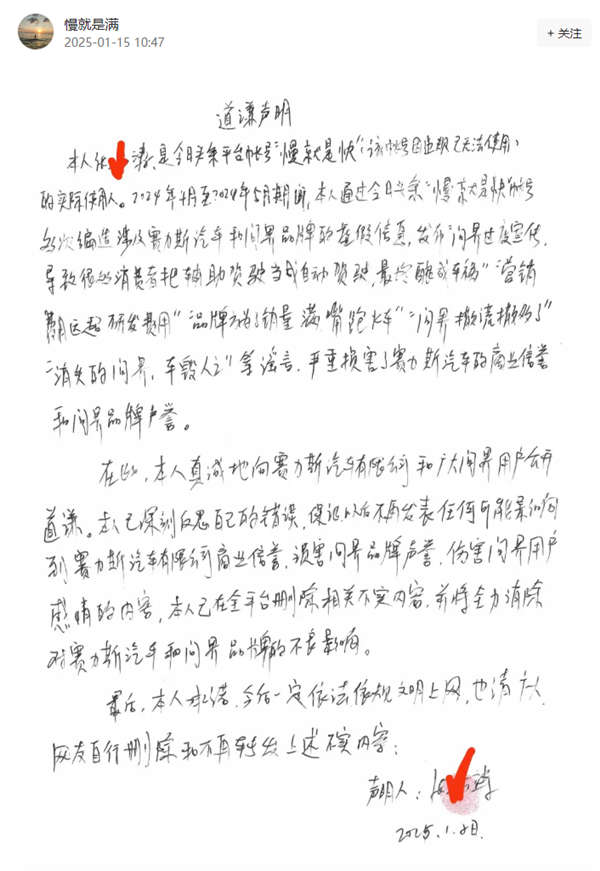 慢就是满
2025-01-15 10:47
+ 关注
道谦声明
本人 是今日头条平台帐号"慢就是快"(该帐号因违规已无法使用)
的实际使用人。2024年4月至2024年5月期间,本人通过今日头条"慢就是快"帐号
多次编造涉及赛力斯汽车和问界品牌的虚假信息,发布"问界过度宣传,
导致很多消费者把辅助驾驶当成自动驾驶,最终酿成车祸""营销
费用远超研发费用""品牌为了销量满嘴跑火车""问界撒谎撒多了"
"消失的问界,车毁人亡"等谣言,严重损害了赛力斯汽车的商业信誉
和问界品牌声誉。
在此,本人真诚地向赛力斯汽车有限公司和广大问界用户公开
道谦。本人已深刻反思自己的错误,保证以后不再发表任何可能影响
到赛力斯汽车有限公司商业信誉、损害问界品牌声誉、伤害问界用户
感情的内容,本人已在全平台删除相关不实内容,并将全力消除
对赛力斯汽车和问界品牌的不良影响。
最后,本人承诺,今后一定依法依规文明上网,也请广大
网友自行删除和不再转发上述不实内容;
声明人:
2025.1.